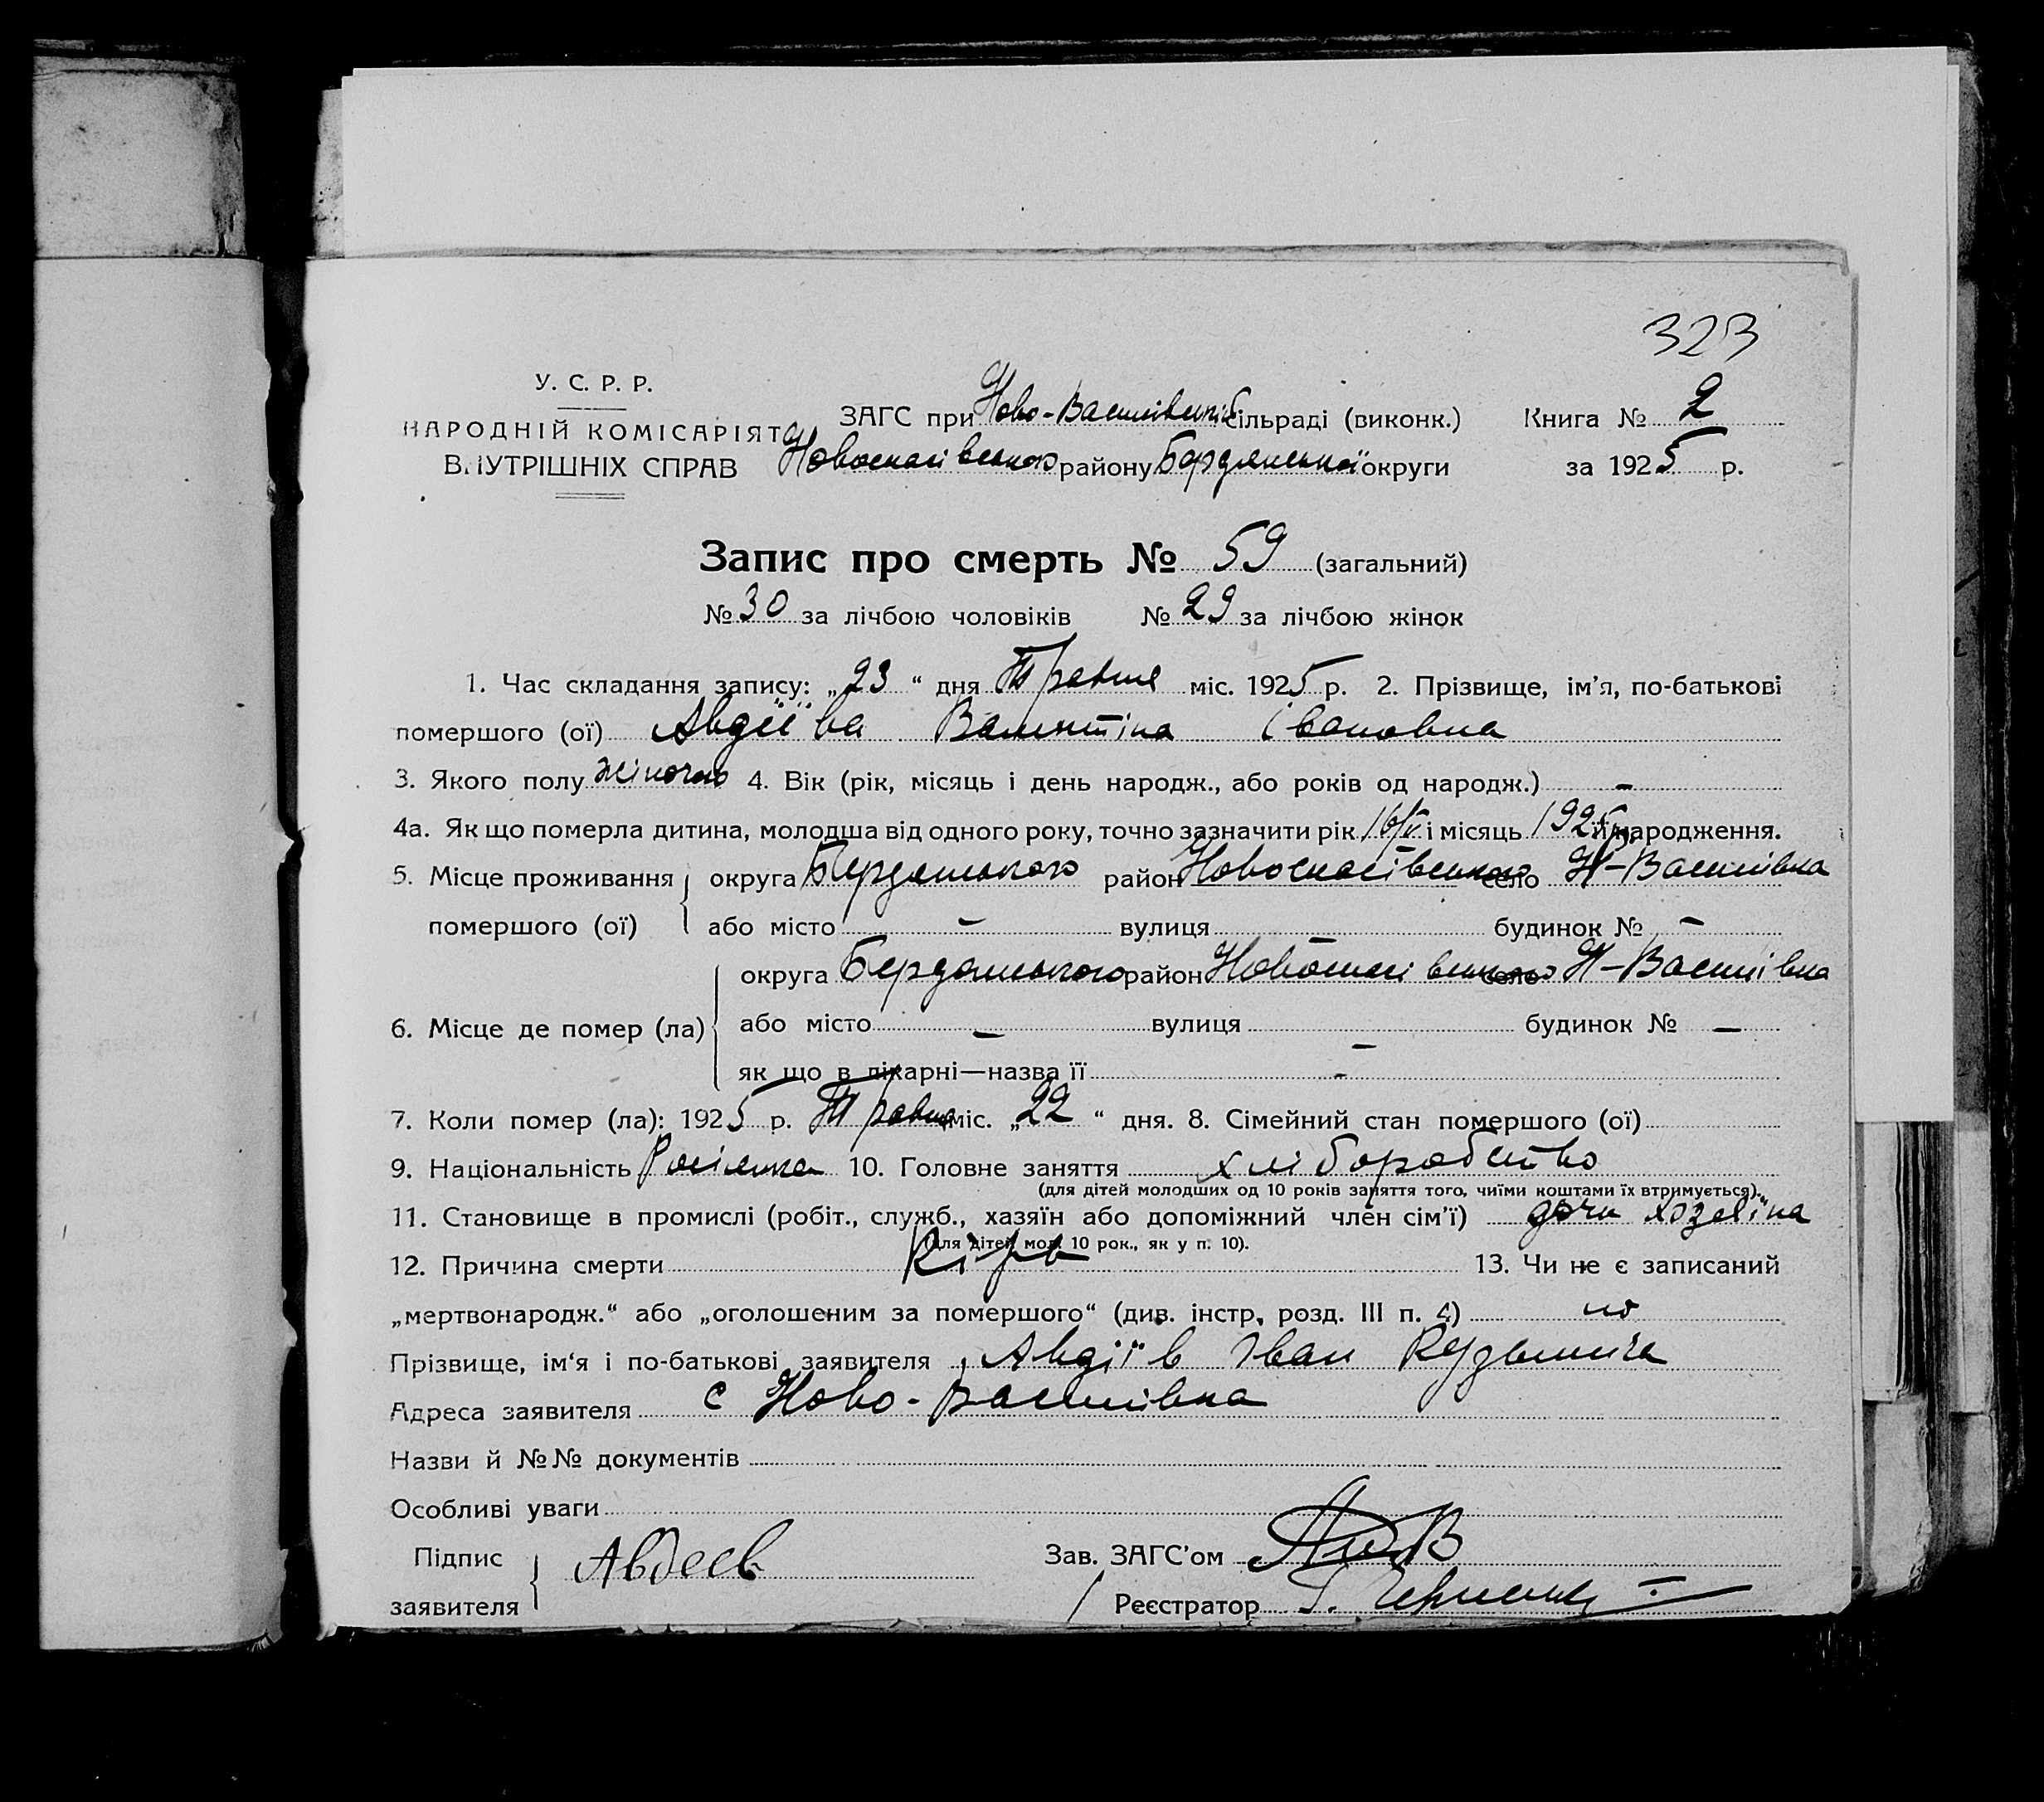 323
У. С. Р. Р.
НАРОДНІЙ КОМІСАРІЯТ
ВНУТРІШНІХ СПРАВ
ЗАГС при Ново-Василівській сільраді (виконк.) Книга № 2
Новоспасівського району Бердянської округи за 1925 р.
Запис про смерть № 59 (загальний)
№ 30 за лічбою чоловіків № 29 за лічбою жінок
1. Час складання запису: „23“ дня Травня міс. 1925 р. 2. Прізвище, ім’я, по-батькові
помершого (ої) Авдіїва Валентіна Івановна
3. Якого полу жіночого 4. Вік (рік, місяць і день народж., або років од народж.) –
4а. Як що померла дитина, молодша від одного року, точно зазначити рік 16/V і місяць 1925 її народження.
5. Місце проживання помершого (ої) округа Бердянського район Новоспасівського село Н-Василівка
або місто – вулиця – будинок № –
6. Місце де помер (ла) округа Бердянського район Новоспасівського село Н-Василівка
або місто – вулиця – будинок № –
як що в лікарні—назва її –
7. Коли помер (ла): 1925 р. Травня міс. „22“ дня. 8. Сімейний стан помершого (ої)
9. Національність Росіянка 10. Головне заняття хліборобство
(для дітей молодших од 10 років заняття того, чиїми коштами їх втримується).
11. Становище в промислі (робіт., служб., хазяїн або допоміжний член сім’ї) дочка хозяїна
(для дітей мол. 10 рок., як у п. 10).
12. Причина смерти Кірь 13. Чи не є записаний
„мертвонародж.“ або „оголошеним за помершого“ (див. інстр. розд. III п. 4) но
Прізвище, ім‘я і по-батькові заявителя Авдіїв Іван Кузьмича
Адреса заявителя с Ново-Василівка
Назви й №№ документів
Особливі уваги
Підпис заявителя Авдеев Зав. ЗАГС’ом
Реєстратор Г.